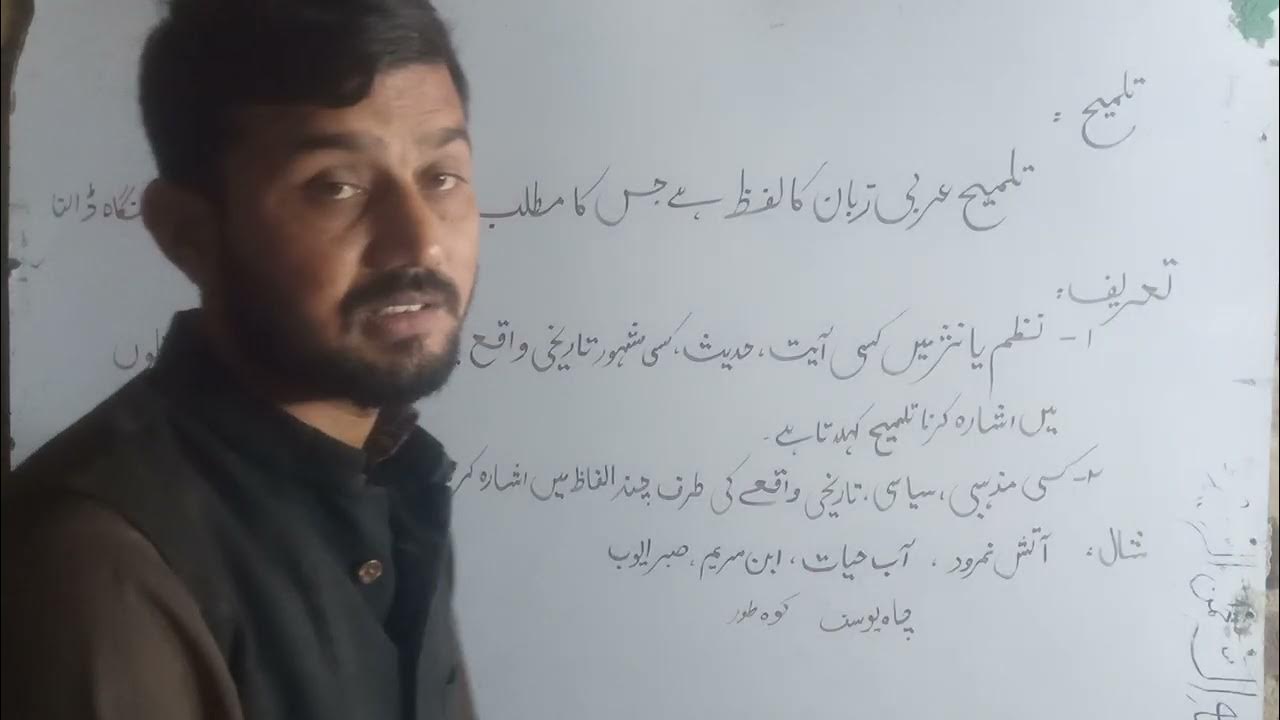 تلمیح :
تلمیح عربی زبان کا لفظ ہے جس کا مطلب نگاہ ڈالنا
تعریف :
۱- نظم یا نثر میں کسی آیت، حدیث، کسی مشہور تاریخی واقع
میں اشارہ کرنا تلمیح کہلاتا ہے۔
۲- کسی مذہبی، سیاسی، تاریخی واقعے کی طرف چند الفاظ میں اشارہ
مثال: آتش نمرود ، آب حیات ، ابن مریم ، صبر ایوب
چاہ یوسف کوہ طور